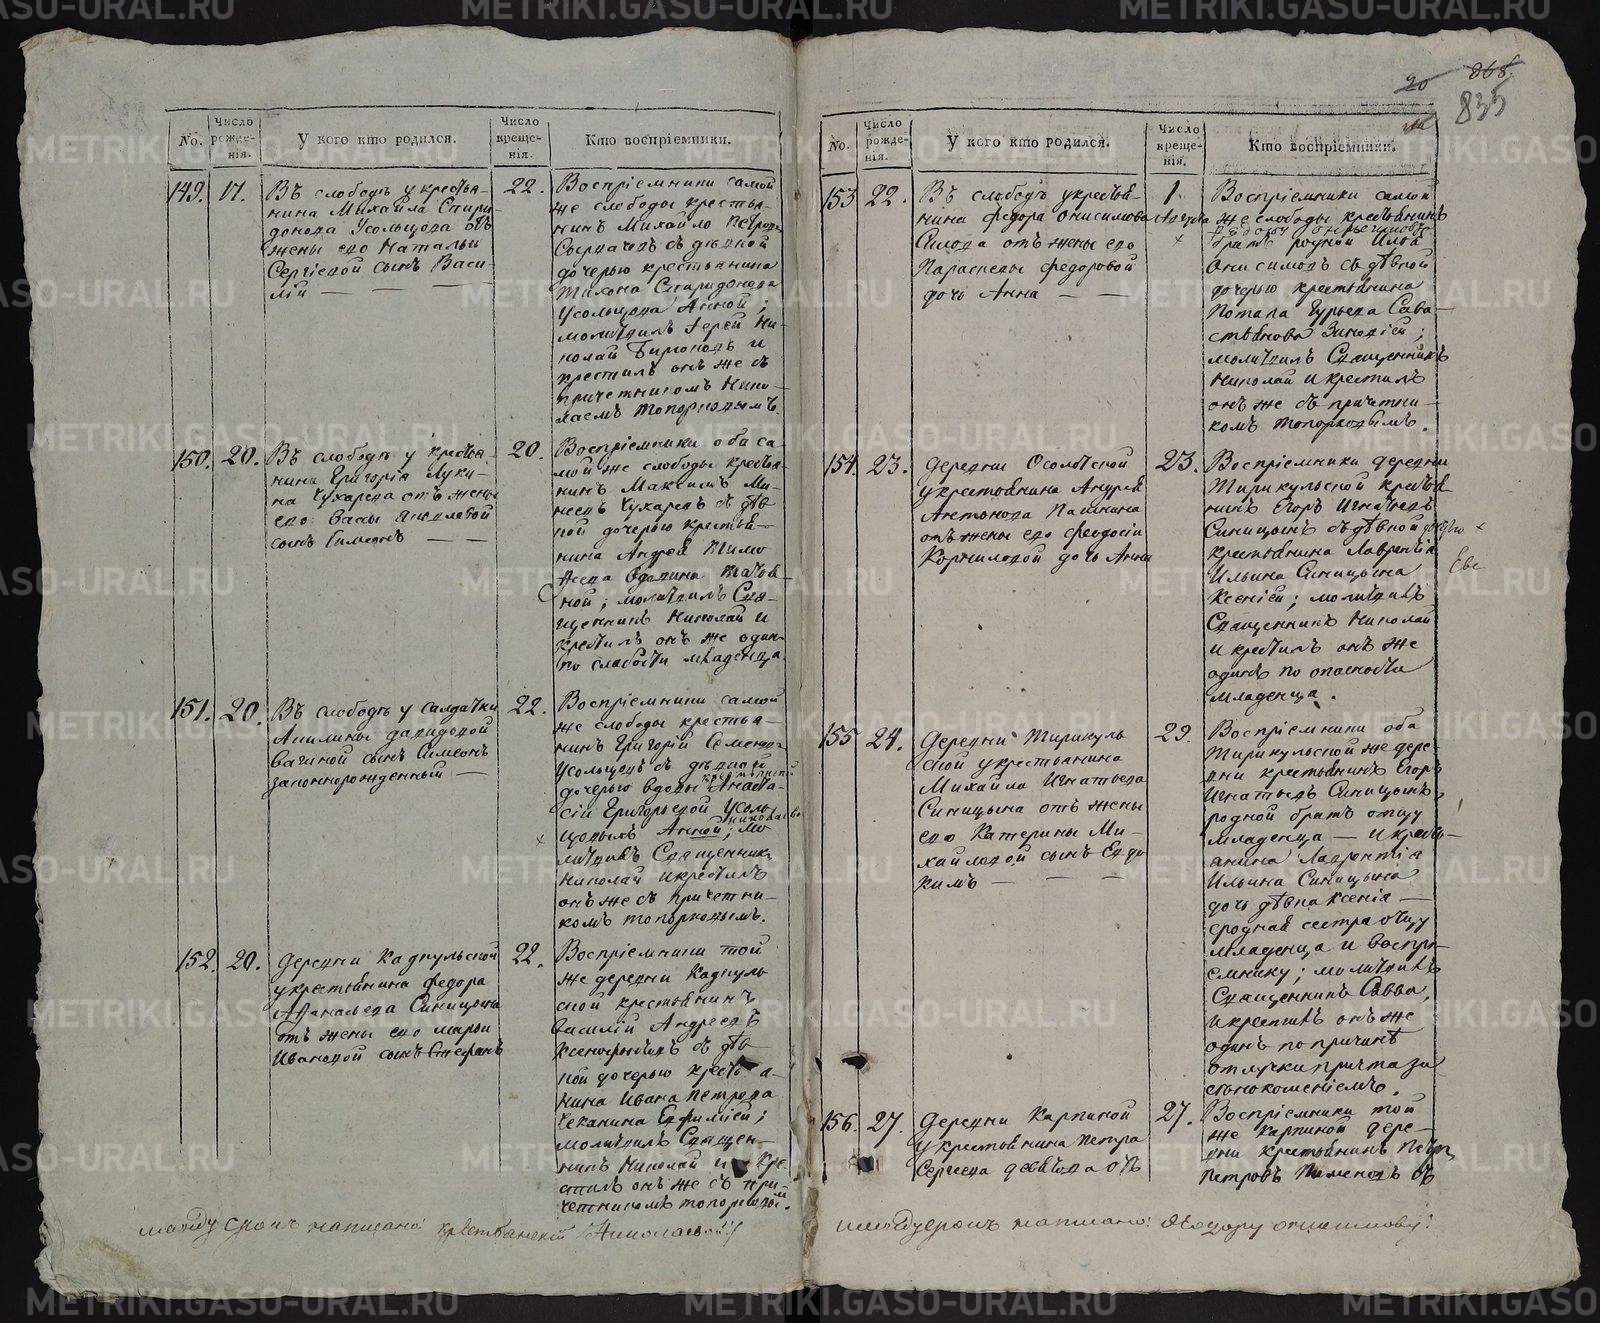 No.
Число рожденія.
У кого кто родился.
Число крещенія.
Кто воспріемники.
149. 17.
Въ слободѣ у крестья-
нина Михайла Спири-
донова Усольцова отъ
жены его Натальи
Сергіевой сынъ Васи-
лій
22.
Воспріемники самой
же слободы крестья-
нинъ Михайло Петровъ
съ дѣвкой
дочерью крестьянина
Тихона Спиридонова
Усольцова Анной;
молитвилъ Іерей Ни-
колай Бирюковъ и
крестилъ онъ же съ
причетникомъ Нико-
лаемъ Топорковымъ.
150. 20.
Въ слободѣ у крестья-
нина Григорія Луки-
на Чухарева отъ жены
его Вассы Яковлевой
сынъ Симеонъ
20.
Воспріемники оба са-
мой же слободы крестья-
нинъ Максимъ Ми-
неевъ Чухаревъ съ дѣв
кой дочерью крестья-
нина Андрея Тимо
феева Татья-
ной; молитвилъ Свя-
щенникъ Николай и
крестилъ онъ же одинъ
по слабости младенца.
151. 20.
Въ слободѣ у салдатки
Акилины Давидовой
Вагиной сынъ Симеонъ
законнорожденный
22.
Воспріемники самой
же слободы крестья-
нинъ Григорій Семеновъ
Усольцовъ съ дѣвкой
дочерью вдовы Анаста-
сіи Григорьевой Усоль
цовыхъ Анной; мо
литвилъ Священникъ
Николай и крестилъ
онъ же съ причетни-
комъ Топорковымъ.
152. 20.
Деревни Кадкульской
у крестьянина Федора
Афанасьева Синицына
отъ жены его Марьи
Ивановой сынъ Стефанъ
22.
Воспріемники той
же деревни Кадкуль
ской крестьянинъ
Василій Андреевъ
Ксенофонтовъ съ дѣв
кой дочерью крестья-
нина Ивана Петрова
Чеканина Евфиміей;
молитвилъ Священ-
никъ Николай и кре-
стилъ онъ же съ при-
четникомъ Топорковым.
между строкъ написано: крестьянской (Николаевой)
20 868.
835
No.
Число рожденія.
У кого кто родился.
Число крещенія.
Кто воспріемники.
153 22.
Въ слободѣ у крестья-
нина Федора Онисимова
Силова отъ жены его
Параскевы Федоровой
дочь Анна
1.
Августа
Воспріемники самой
же слободы крестьянинъ
братъ родной Илья
Онисимовъ съ дѣвкой
дочерью крестьянина
Потапа Гурьева Сева-
стьянова Зиновіей;
молитвилъ Священникъ
Николай и крестилъ
онъ же съ причетни-
комъ Топорковымъ.
154. 23.
Деревни Осолотской
у крестьянина Андрея
Антонова Пашнина
отъ жены его Феодосіи
Корниловой дочь Анна
23.
Воспріемники деревни
Тирикульской крестья
нинъ Егоръ Игнатьевъ
Синицынъ съ дѣвкой дочерью
крестьянина Лаврентія
Ильина Синицына
Ксеніей; молитвилъ
Священникъ Николай
и крестилъ онъ же
одинъ по опасности
младенца.
155 24.
Деревни Тирикуль
ской у крестьянина
Михайла Игнатьева
Синицына отъ жены
его Катерины Ми-
хайловой сынъ Евдо
кимъ
29.
Воспріемники оба
Тирикульской же дере-
вни крестьянинъ Егоръ
Игнатьевъ Синицынъ,
родной братъ отцу
младенца — и кресть-
янина Лаврентія
Ильина Синицына
дочь дѣвка Ксенія —
сродная сестра отцу
младенца и воспрі-
емнику; молитвилъ
Священникъ Савва,
и крестилъ онъ же
одинъ по причинѣ
отлучки причта за
156. 27.
Деревни Карпиной
у крестьянина Петра
Сергеева Девятова отъ
27.
Воспріемники той
же Карпиной дере-
вни крестьянинъ Петръ
Петровъ Пименовъ съ
между строкъ написано: Федору Онисимову: